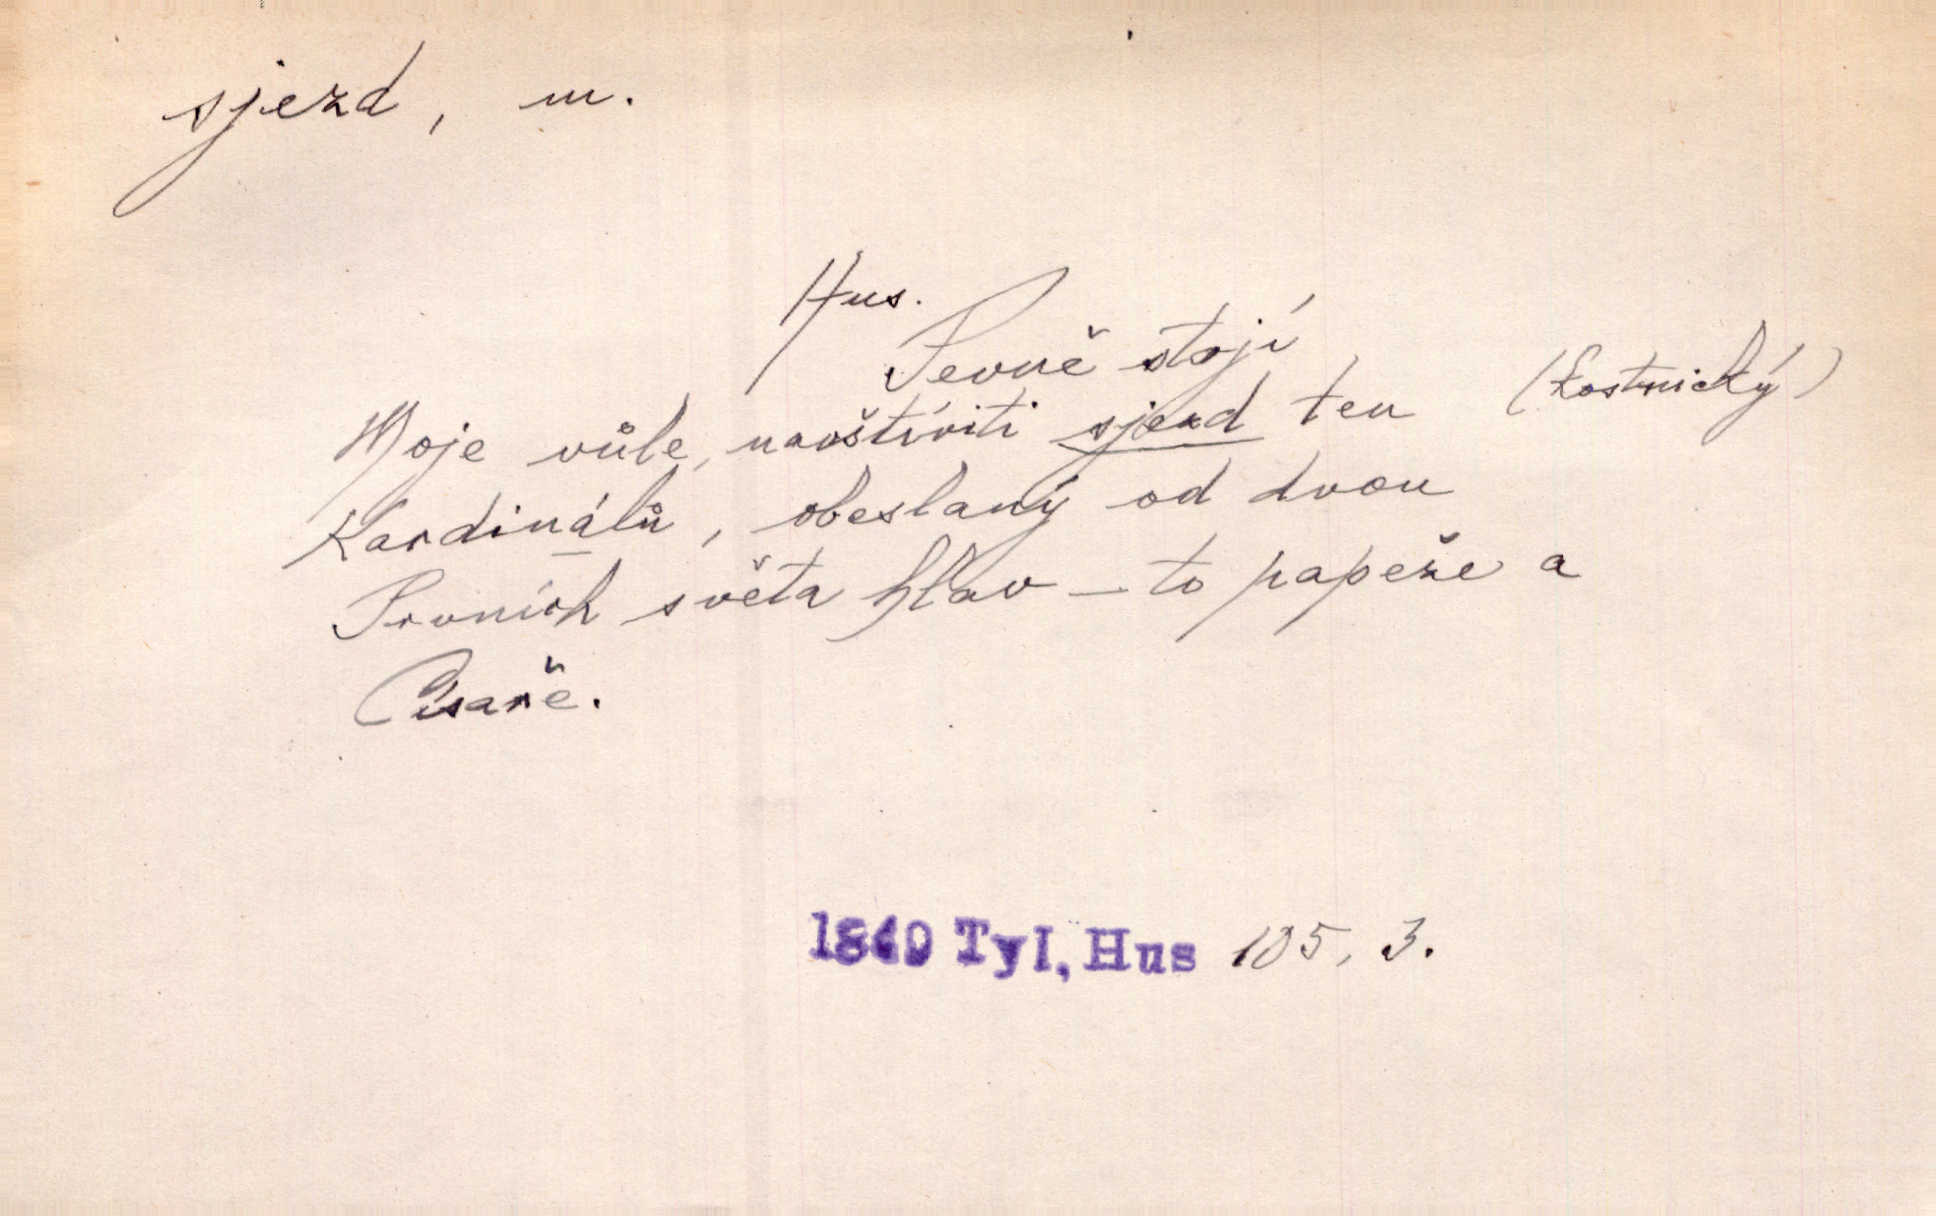 sjezd, m.
Hus.
Pevně stojí
Moje vůle, navštíviti sjezd ten (kostnický)
Kardinálů, obeslaný od dvou
Prvních světa hlav – to papeže a
Císaře.
1849 Tyl, Hus 105, 3.